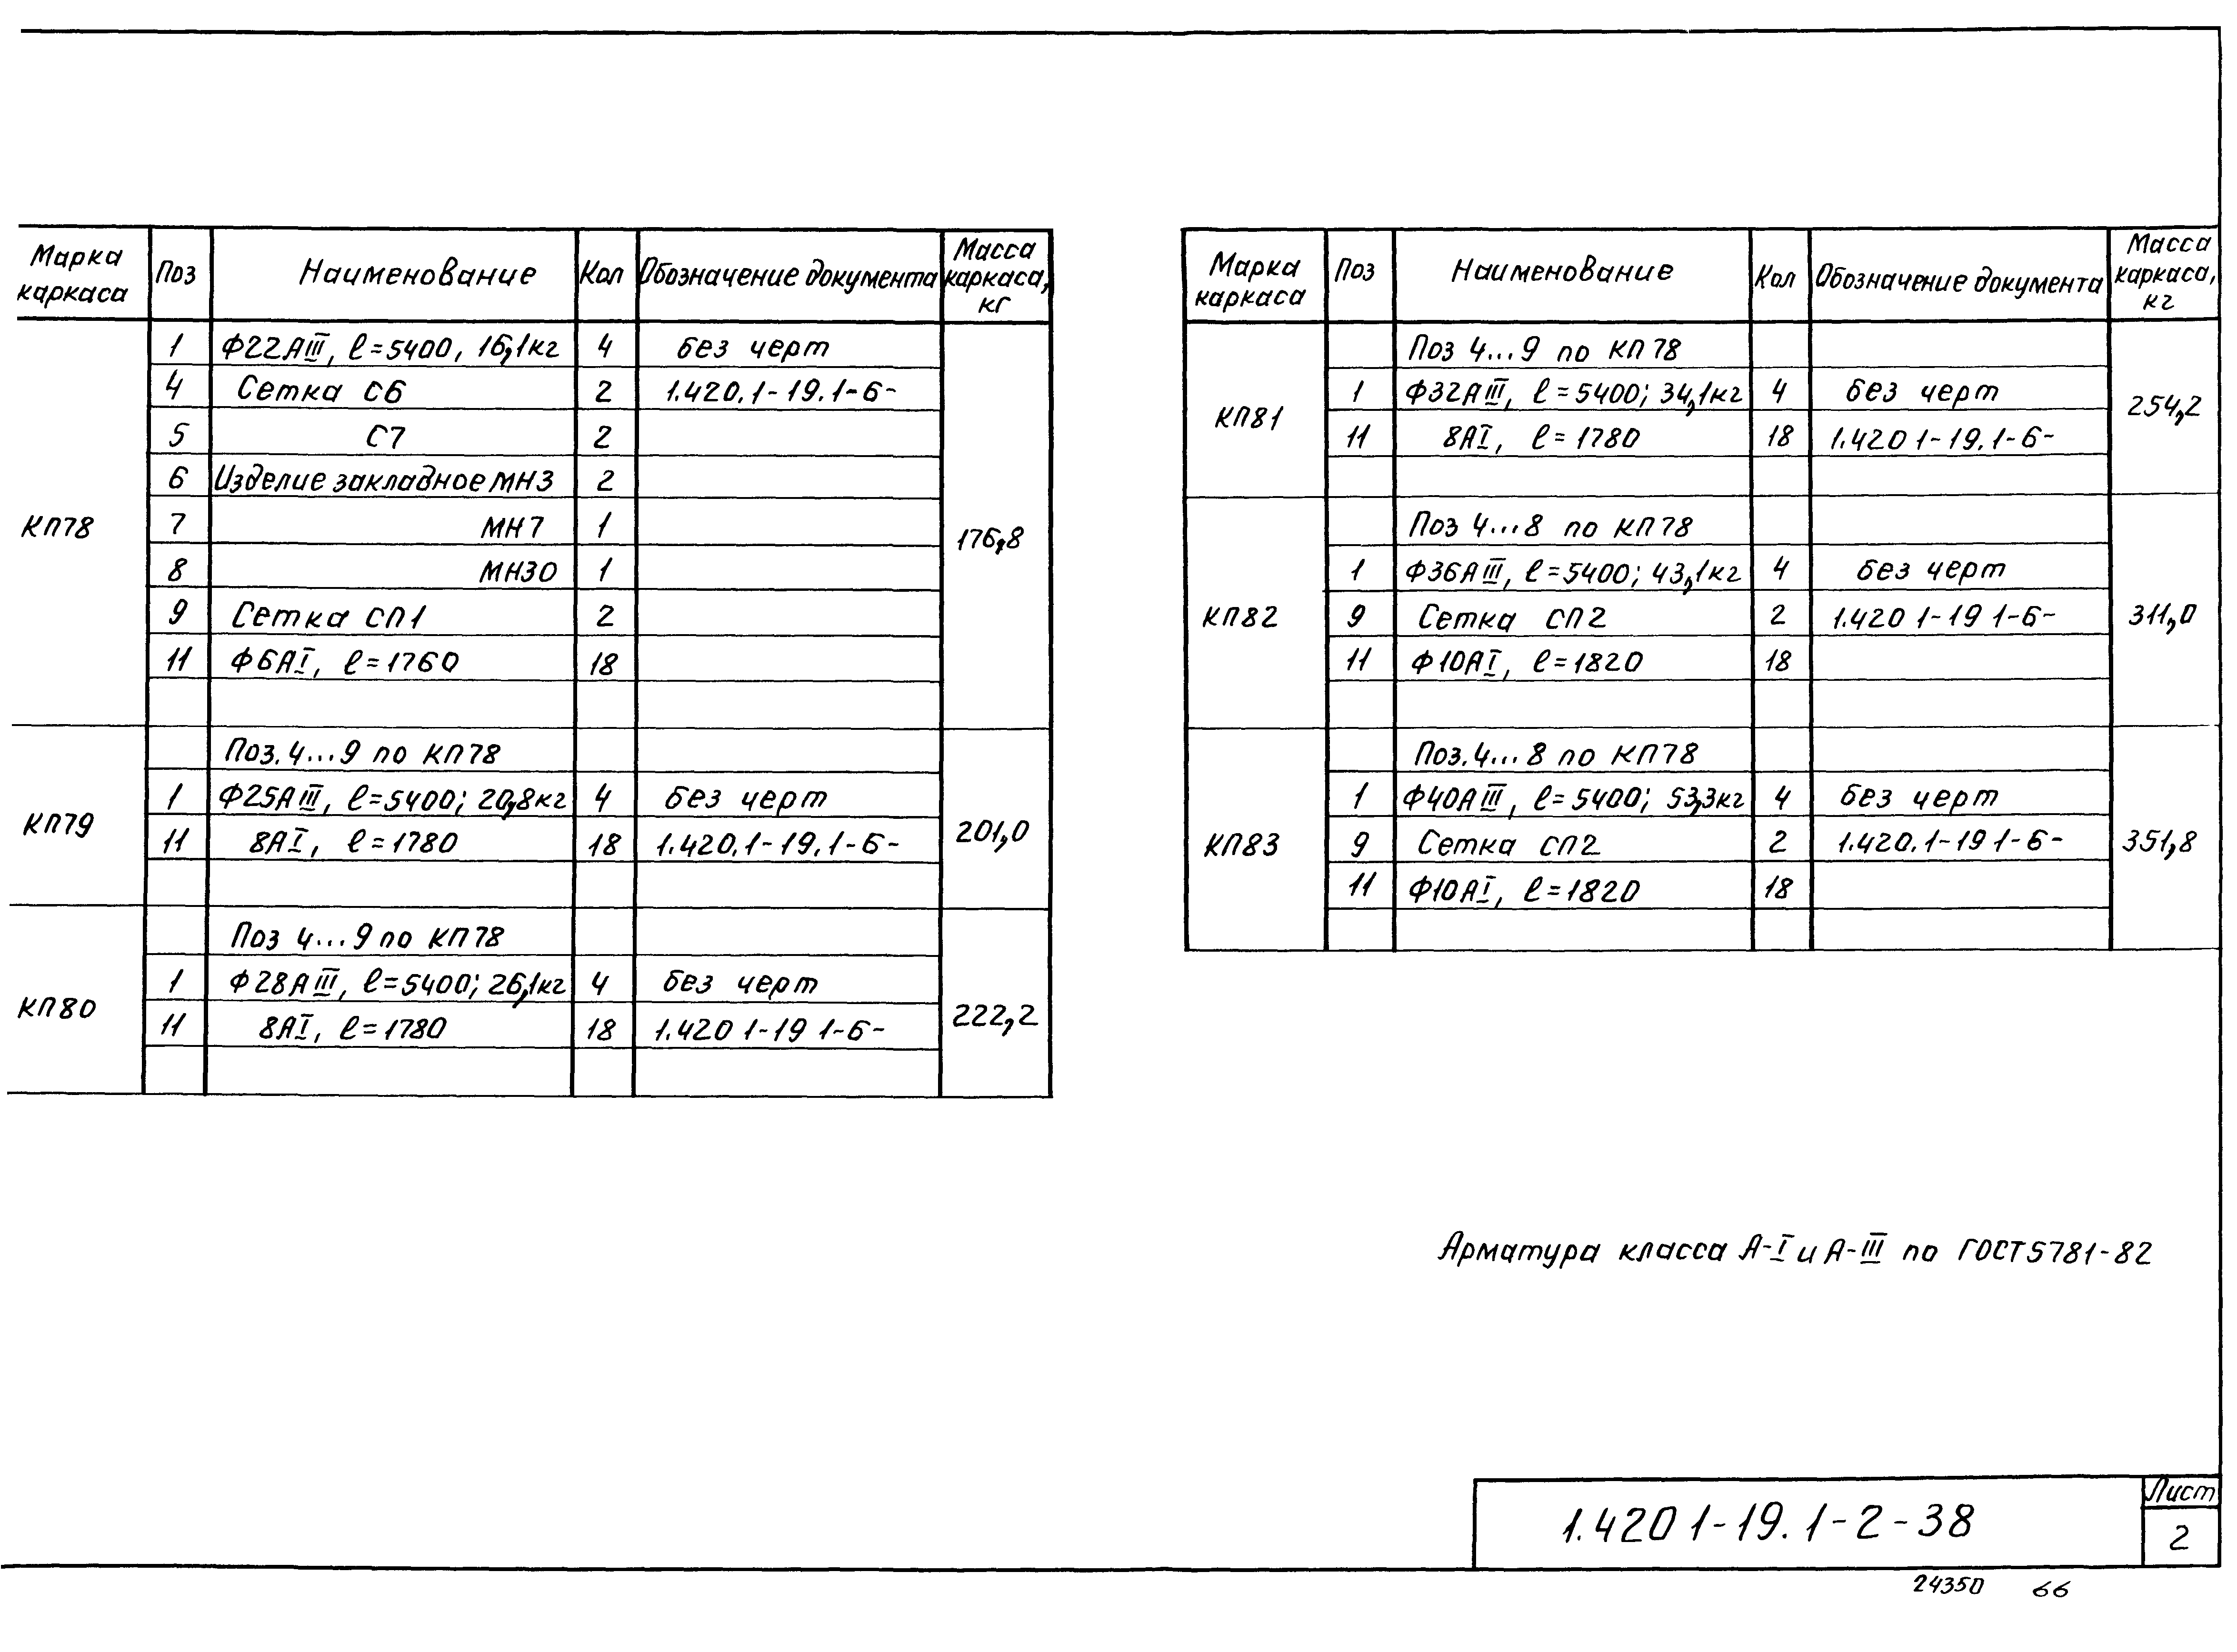 Марка каркаса | Поз | Наименование | Кол | Обозначение документа | Масса каркаса, кг
КП78 | 1 | Ф22АIII, ℓ=5400, 16,1кг | 4 | без черт | 176,8
4 | Сетка С6 | 2 | 1.420.1-19.1-6-
5 | С7 | 2
6 | Изделие закладное МН3 | 2
7 | МН7 | 1
8 | МН30 | 1
9 | Сетка СП1 | 2
11 | Ф6АI, ℓ=1760 | 18
КП79 | Поз. 4...9 по КП78 | 201,0
1 | Ф25АIII, ℓ=5400; 20,8кг | 4 | без черт
11 | 8АI, ℓ=1780 | 18 | 1.420.1-19.1-6-
КП80 | Поз 4...9 по КП78 | 222,2
1 | Ф28АIII, ℓ=5400; 26,1кг | 4 | без черт
11 | 8АI, ℓ=1780 | 18 | 1.420 1-19 1-6-
Марка каркаса | Поз | Наименование | Кол | Обозначение документа | Масса каркаса, кг
КП81 | Поз 4...9 по КП78 | 254,2
1 | Ф32АIII, ℓ=5400; 34,1кг | 4 | без черт
11 | 8АI, ℓ=1780 | 18 | 1.420 1-19.1-6-
КП82 | Поз 4...8 по КП78 | 311,0
1 | Ф36АIII, ℓ=5400; 43,1кг | 4 | без черт
9 | Сетка СП2 | 2 | 1.420 1-19 1-6-
11 | Ф10АI, ℓ=1820 | 18
КП83 | Поз. 4...8 по КП78 | 351,8
1 | Ф40АIII, ℓ=5400; 53,3кг | 4 | без черт
9 | Сетка СП2 | 2 | 1.420.1-19 1-6-
11 | Ф10АI, ℓ=1820 | 18
Арматура класса А-I и А-III по ГОСТ5781-82
1.420 1-19. 1-2-38
Лист
2
24350 66